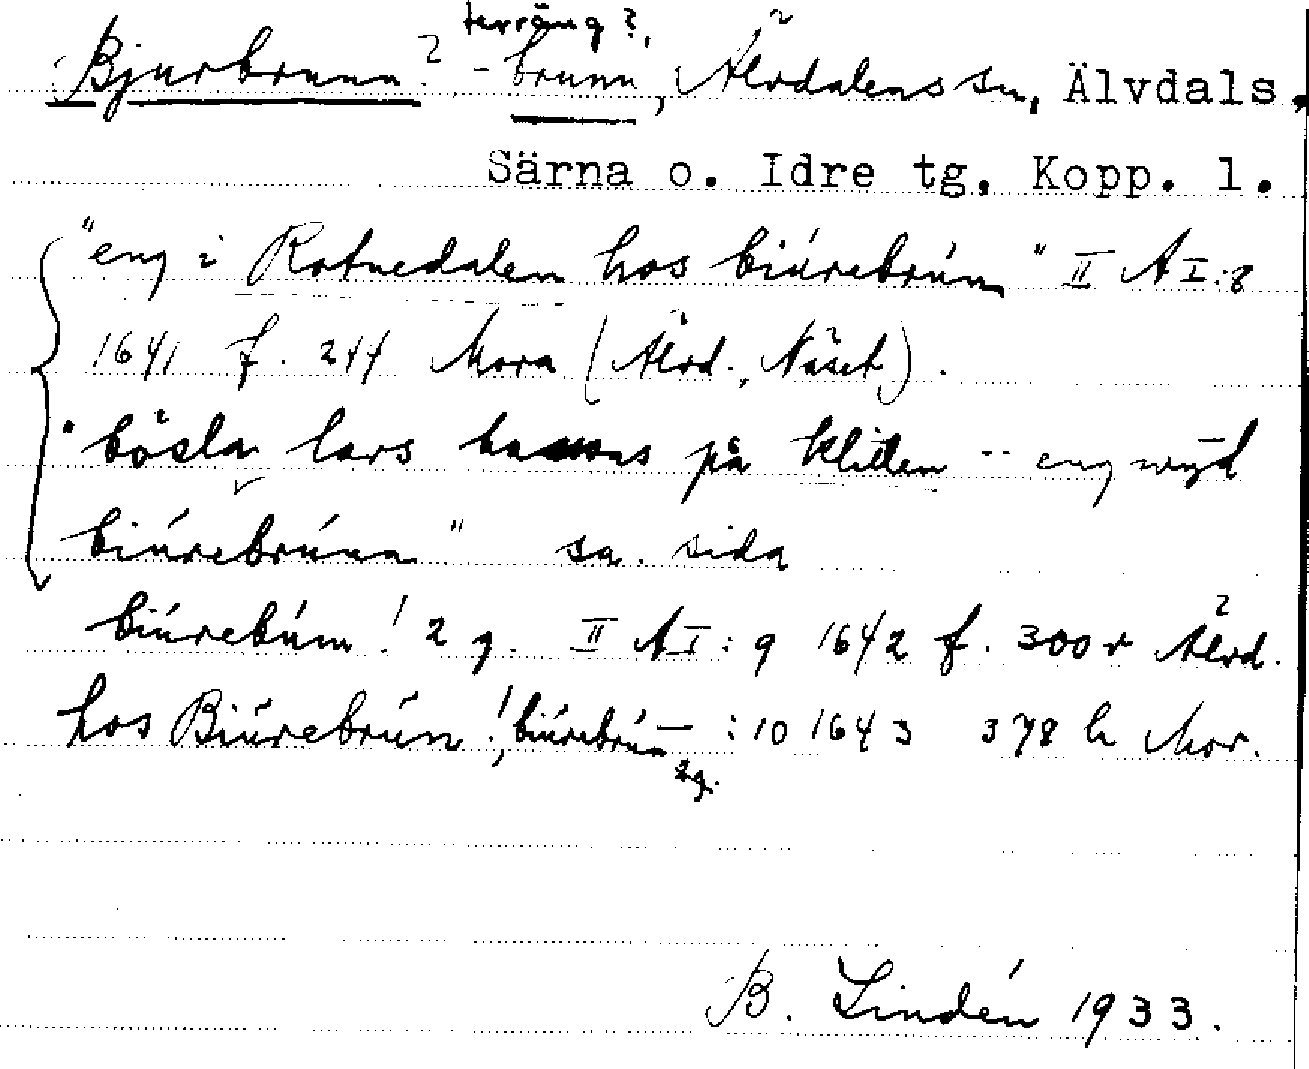 terräng?,
Bjurbrunn? -brunn, Älvdalens sn, Älvdals,
Särna o. Idre tg. Kopp. l.
"eng i Rotnedalen hos biúrebrún" II A I:8
1641 f. 244 Mora (Älvd., Näset).
"bösla lars på klitten -- eng wijd
biúrebrúnn" sa. sida
biúrebúnn! 2 g. II A I:9 1642 f. 300 r Älvd.
hos Biúrebrún!, biúrebrún — :10 1643 378 h Mor.
2g.
B. Lindén 1933.